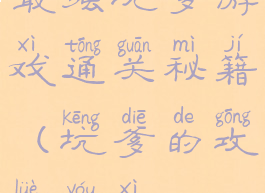 最 游
xì tōng guān mì jí
戏通关秘籍
kēng diē de gōng
（坑爹的攻
lüè yóu xì